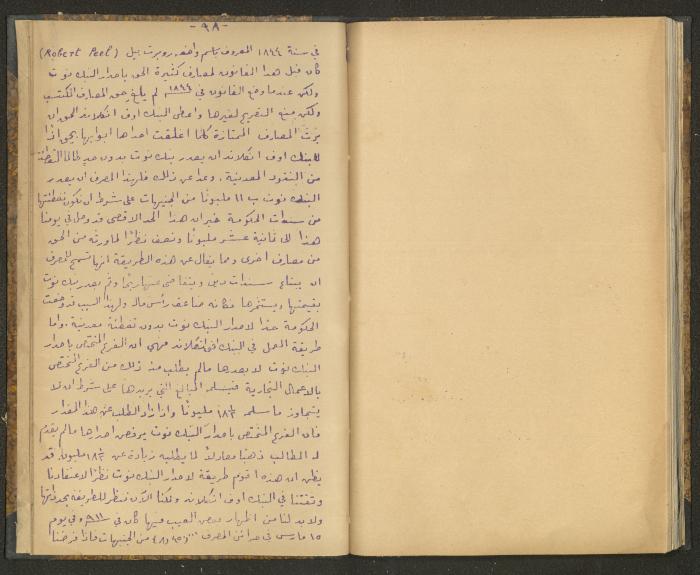 -٩٨-
في سنة ١٨٤٤ المعروف باسم واضعه روبرت بيل (Robert Peel)
كان قبل هذا القانون لمصارف كثيرة الحق باصدار البنك نوت
ولكن عندما وضع القانون في ١٨٤٤ لم يلغ حق المصارف المكتسب
ولكن منع التصريح لغيرها واعطى البنك اوف انكلاند الحق ان
يرث المصارف الممتازة كلما اغلقت احداها ابوابها يحق اذًا
لبنك اوف انكلاند ان يصدر بنك نوت بدون حد طالما التغطية
من النقود المعدنية. وعدا عن ذلك فلهذا المصرف ان يصدر
البنك نوت ب ١١ مليونًا من الجنيهات على شرط ان تكون تغطيتها
من سندات الحكومة غير ان هذا الحد الاقصى قد وصل في يومنا
هذا الى ثمانية عشر مليونًا ونصف نظرًا لما ورثه من الحق
من مصارف اخرى ومما يقال عن هذه الطريقة انها تسمح للمصرف
ان يبتاع سندات دين ويتقاضى عنها ربحًا وثم يصدر بنك نوت
بقيمتها ويستثمرها فكانه ضاعف رأس ماله ولهذا السبب قد وضعت
الحكومة حدًا لاصدار البنك نوت بدون تغطية معدنية. واما
طريقة العمل في البنك اوف انكلاند فهي ان الفرع المختص باصدار
البنك نوت لا يصدرها مالم يطلب منه ذلك من الفرع المختص
بالاعمال التجارية فيسلمه المبالغ التي يريدها على شرط ان لا
يتجاوز ما سلمه ١٨½ مليونًا واذا زاد الطلب عن هذا المقدار
فان الفرع المختص باصدار البنك نوت يرفض اصدارها مالم يقدم
له المطالب ذهبًا معادلًا لما يطلبه زيادة عن ١٨½ مليون. قد
يظن ان هذه اقوم طريقة لاصدار البنك نوت نظرًا لاعتقادنا
وثقتنا في البنك اوف انكلاند ولكنا الآن ننظر للطريقة بحد ذاتها
ولا بد لنا من اظهار بعض العيب فيها كان في ٩١١ وفي يوم
١٥ مارس في خزائن المصرف من الجنيهات فاذا فرضنا